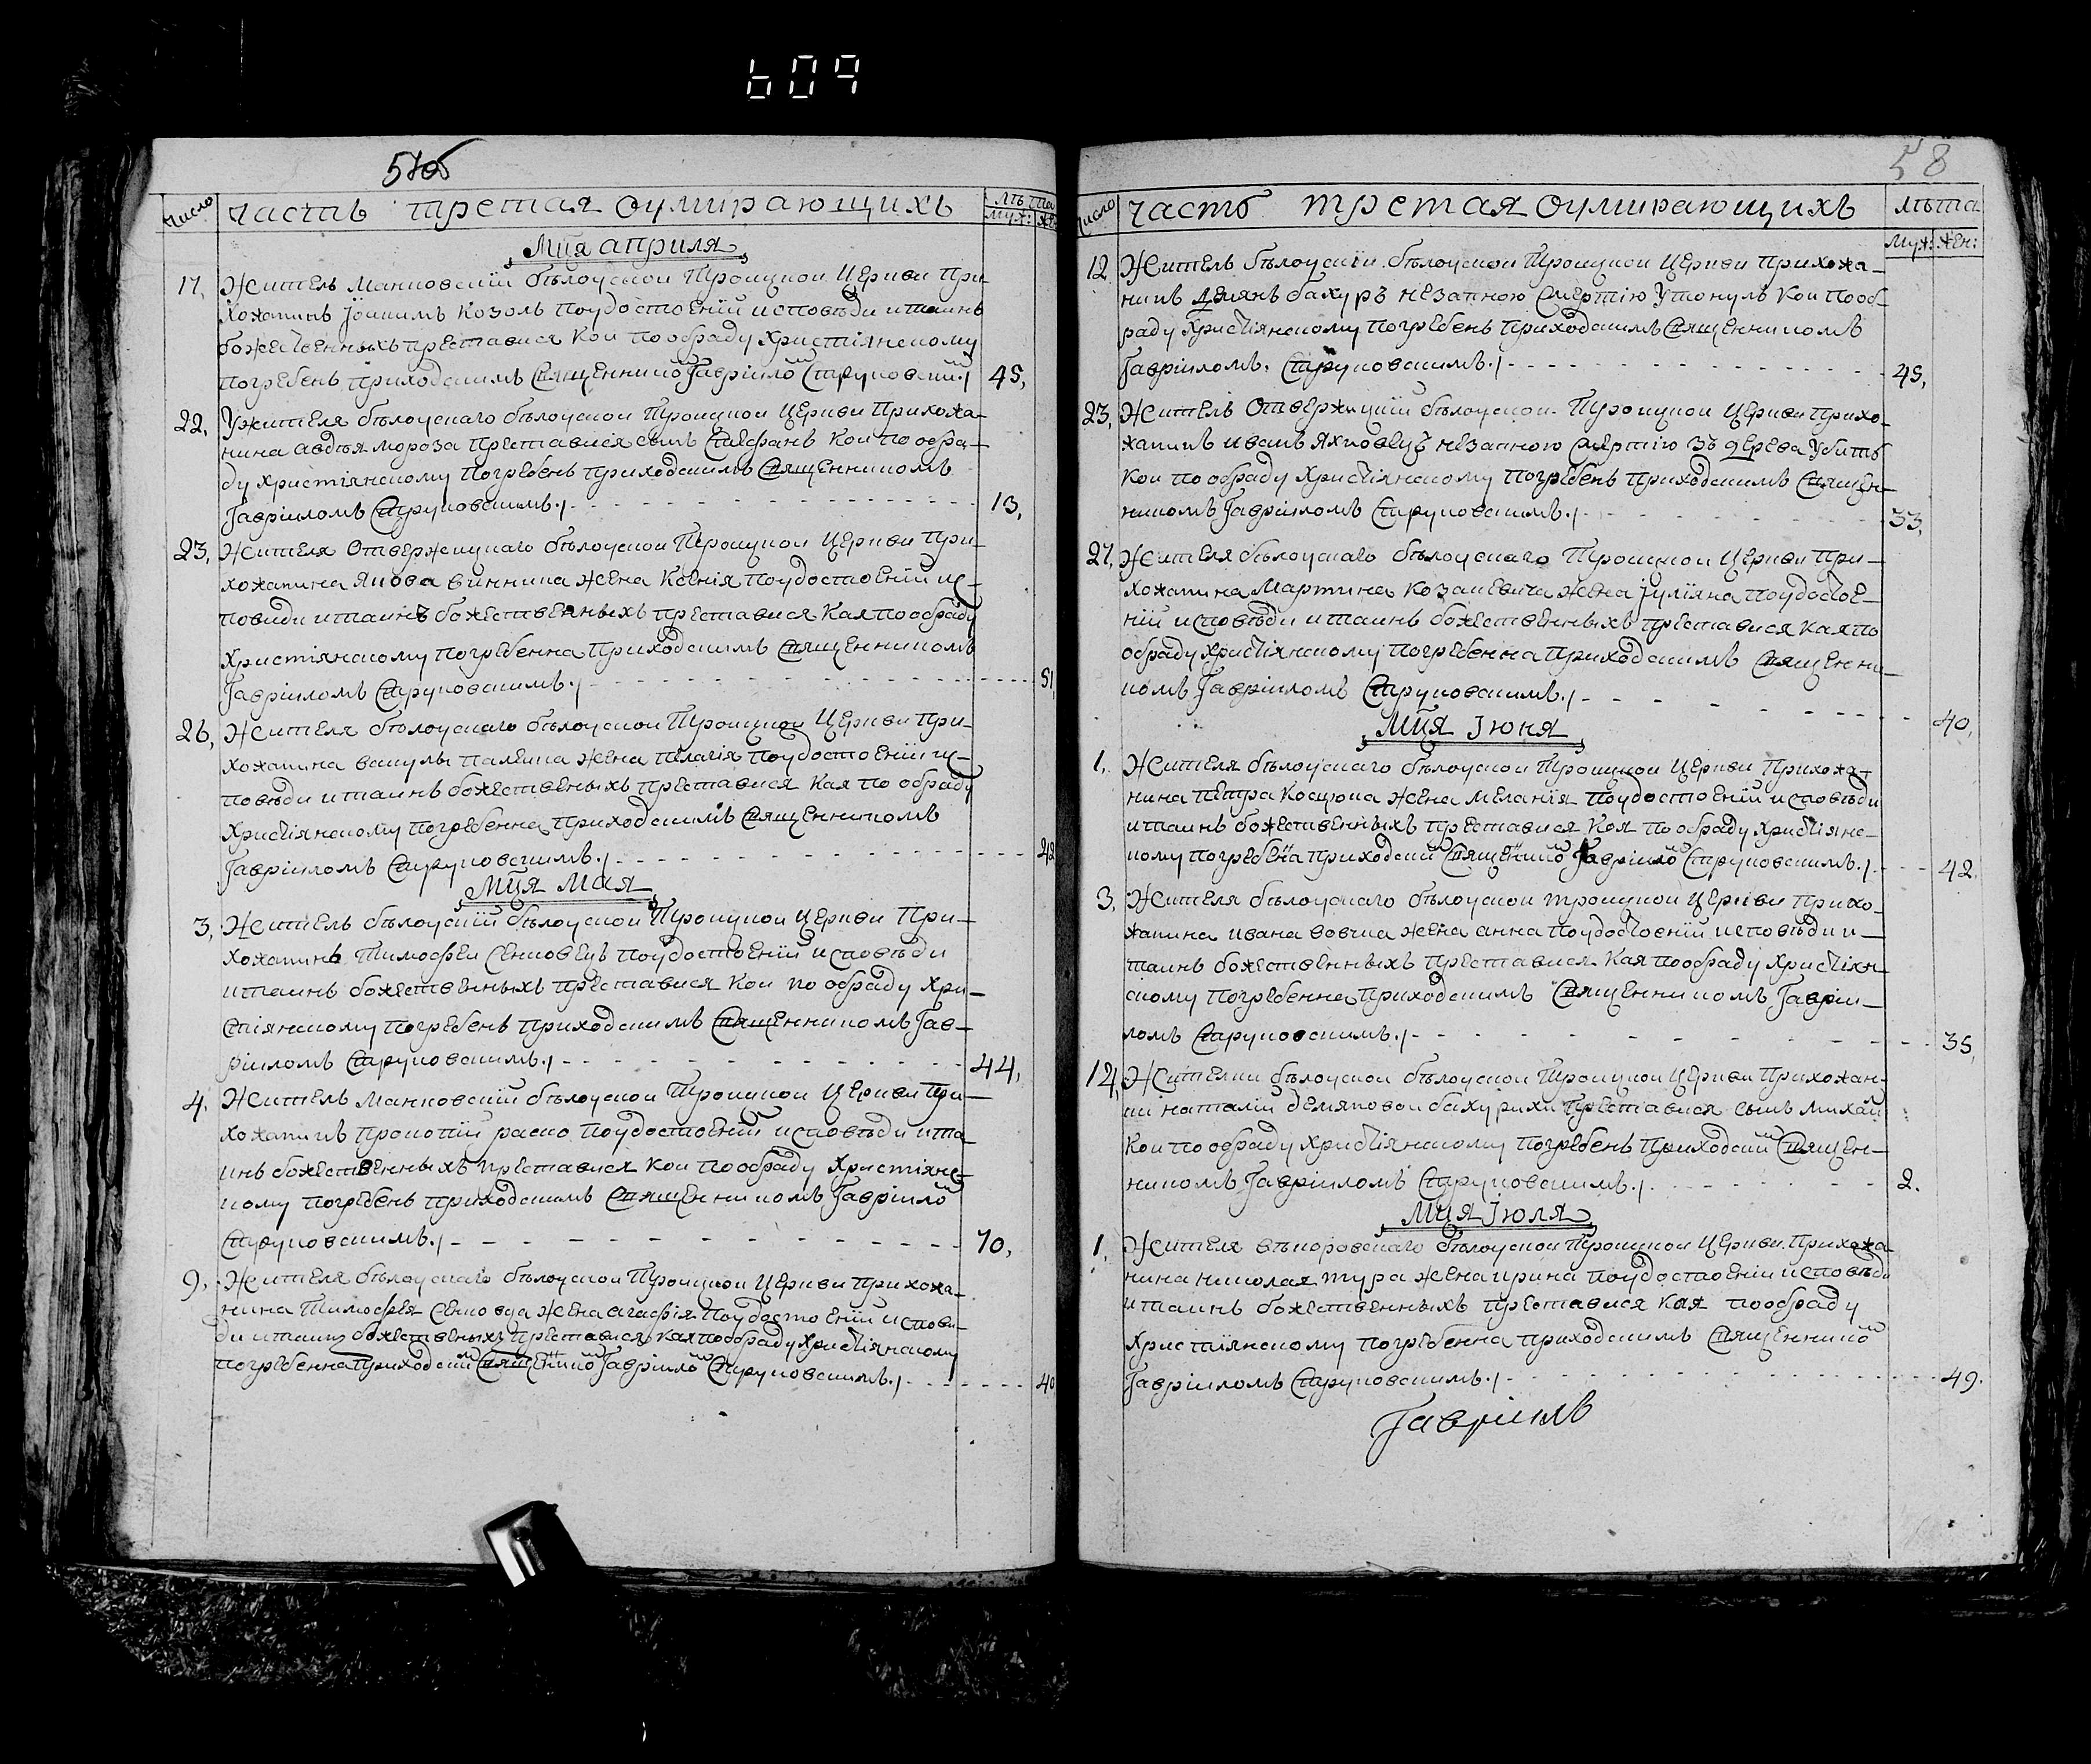 609
57об
Число Часть третая оумирающихъ лѣта
муж: же
Мця априля
17, Житель Манковскїй бѣлоуской Троицкои Церкви При
хожанинъ Јоакимъ Козолъ поудостоенїй исповѣди итаинъ
божественныхъ преставися кои по обряду Христїянскому
погребенъ приходскимъ Священнико Гаврїило Струковский./ 45,
22, Ужителя бѣлоускаго бѣлоускои Троицкои Церкви Прихожа-
нина авдѣя мороза преставися сынъ Стефанъ Кои по обря-
ду христїянскому погребенъ приходскимъ Священникомъ
Гаврїиломъ Струковскимъ./ 13,
23, Жителя Отвержицкаго бѣлоускои Троицкои Церкви При-
хожанина Якова винника жена Ксенїя поудостоенїй ис-
повиди итаинъ божественныхъ преставися Кая пообряду
христїянскому погребенна приходскимъ Священникомъ
Гаврїиломъ Струковскимъ./ 51,
26, Жителя бѣлоускаго бѣлоускои Троицкои Церкви При-
хожанина вакулы жена пелагїя поудостоенїй ис-
повѣди итаинъ божественыхъ преставися Кая по обряду
Христїянскому погребенна приходскимъ Священникомъ
Гаврїиломъ Струковскимъ./ 42
Мця Мая
3, Житель бѣлоускїй бѣлоускои Троицкои Церкви При-
хожанинъ Тимофеи Сенковецъ поудостоенїй исповѣди
итаинъ божественныхъ преставися кои по обряду Хри-
стїянскому погребенъ приходскимъ Священникомъ Гав-
рїиломъ Струковскимъ./ 44,
4. Житель Манковскїй бѣлоускои Троицкои Церкви При-
хожанинъ прокопїй раско поудостоенїй исповѣди ита-
инъ божественныхъ преставися кои пообряду Христїянс-
кому погребенъ приходскимъ Священникомъ Гаврїило
Струковскимъ./ 70,
9, Жителя бѣлоускаго бѣлоускои Троицкои Церкви прихожа-
нина Тимофея Сенковца жена агафїя Поудостоенїй испови-
ди итаинъ божественыхъ преставися кая пообряду Христїянскому
погребенна приходскй Священнико Гаврїило Струковскимъ./ 40
58
Число Часть третая оумирающихъ лѣта
муж: жен:
12 Житель бѣлоускїи бѣлоускои Троицкои Церкви Прихожа-
нинъ Демянъ бахуръ незапною Смертїю Утонулъ Кои пооб-
ряду Христїянскому погребенъ приходскимъ Священникомъ
Гаврїиломъ Струковскимъ./ 45,
23, Житель Отвержицкїй бѣлоускои Троицкои Церкви прихо-
жанинъ иванъ Яхновецъ незапною Смертїю Зъ дерева Убитъ
Кои по обряду Христїянскому погребенъ приходскимъ Священ-
никомъ Гаврїиломъ Струковскимъ./ 33,
27, Жителя бѣлоускаго бѣлоускаго Троицкои Церкви При-
хожанина Мартина Козакевича жена Јулїяна поудостое-
нїй исповѣди итаинъ божественныхъ преставися кая по
обряду Христїянскому погребенна приходскимъ Священни-
комъ Гаврїиломъ Струковскимъ./ 40,
Мця Јюня
1, Жителя бѣлоускаго бѣлоускои Троицкои Церкви Прихожа-
нина Петра Косцюка жена Меланїя поудостоенїй исповѣди
итаинъ божественныхъ преставися Кая пообряду христїянс-
кому погребена приходскй Священнико Гаврїило Струковскимъ./ 42.
3, Жителя бѣлоускаго бѣлоускои троицкои Церкви прихо-
жанина ивана вовчка жена анна поудостоенїй исповѣди и-
таинъ божественныхъ преставися Кая пообряду христїян-
скому погребенна приходскимъ Священникомъ Гаврїи-
ломъ Струковскимъ./ 35,
14, Жителки бѣлоускои бѣлоускои Троицкои Церкви Прихожан-
ки наталїи демяновои бахурихи преставися сынъ михаи
Кои по обряду христїянскому погребенъ приходскй Священ-
никомъ Гаврїиломъ Струковскимъ./ 2.
Мця Јюля
1, Жителя вѣкоровскаго бѣлоускои Троицкои Церкви Прихожа
нина николая тура жена ирина поудостоенїи исповѣди
итаинъ божественныхъ преставися кая пообряду
Христїянскому погребенна приходскимъ Священнико
Гаврїиломъ Струковскимъ./ 49.
Гаврїилъ